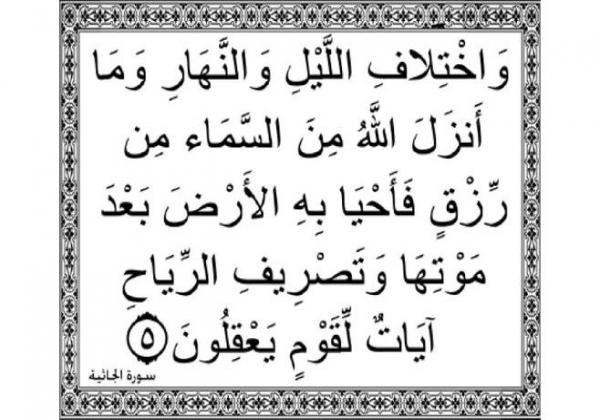 وَاخْتِلَافِ اللَّيْلِ وَالنَّهَارِ وَمَا
أَنزَلَ اللَّهُ مِنَ السَّمَاء مِن
رِّزْقٍ فَأَحْيَا بِهِ الأَرْضَ بَعْدَ
مَوْتِهَا وَتَصْرِيفِ الرِّيَاحِ
آيَاتٌ لِّقَوْمٍ يَعْقِلُونَ ٥
سورة الجاثية